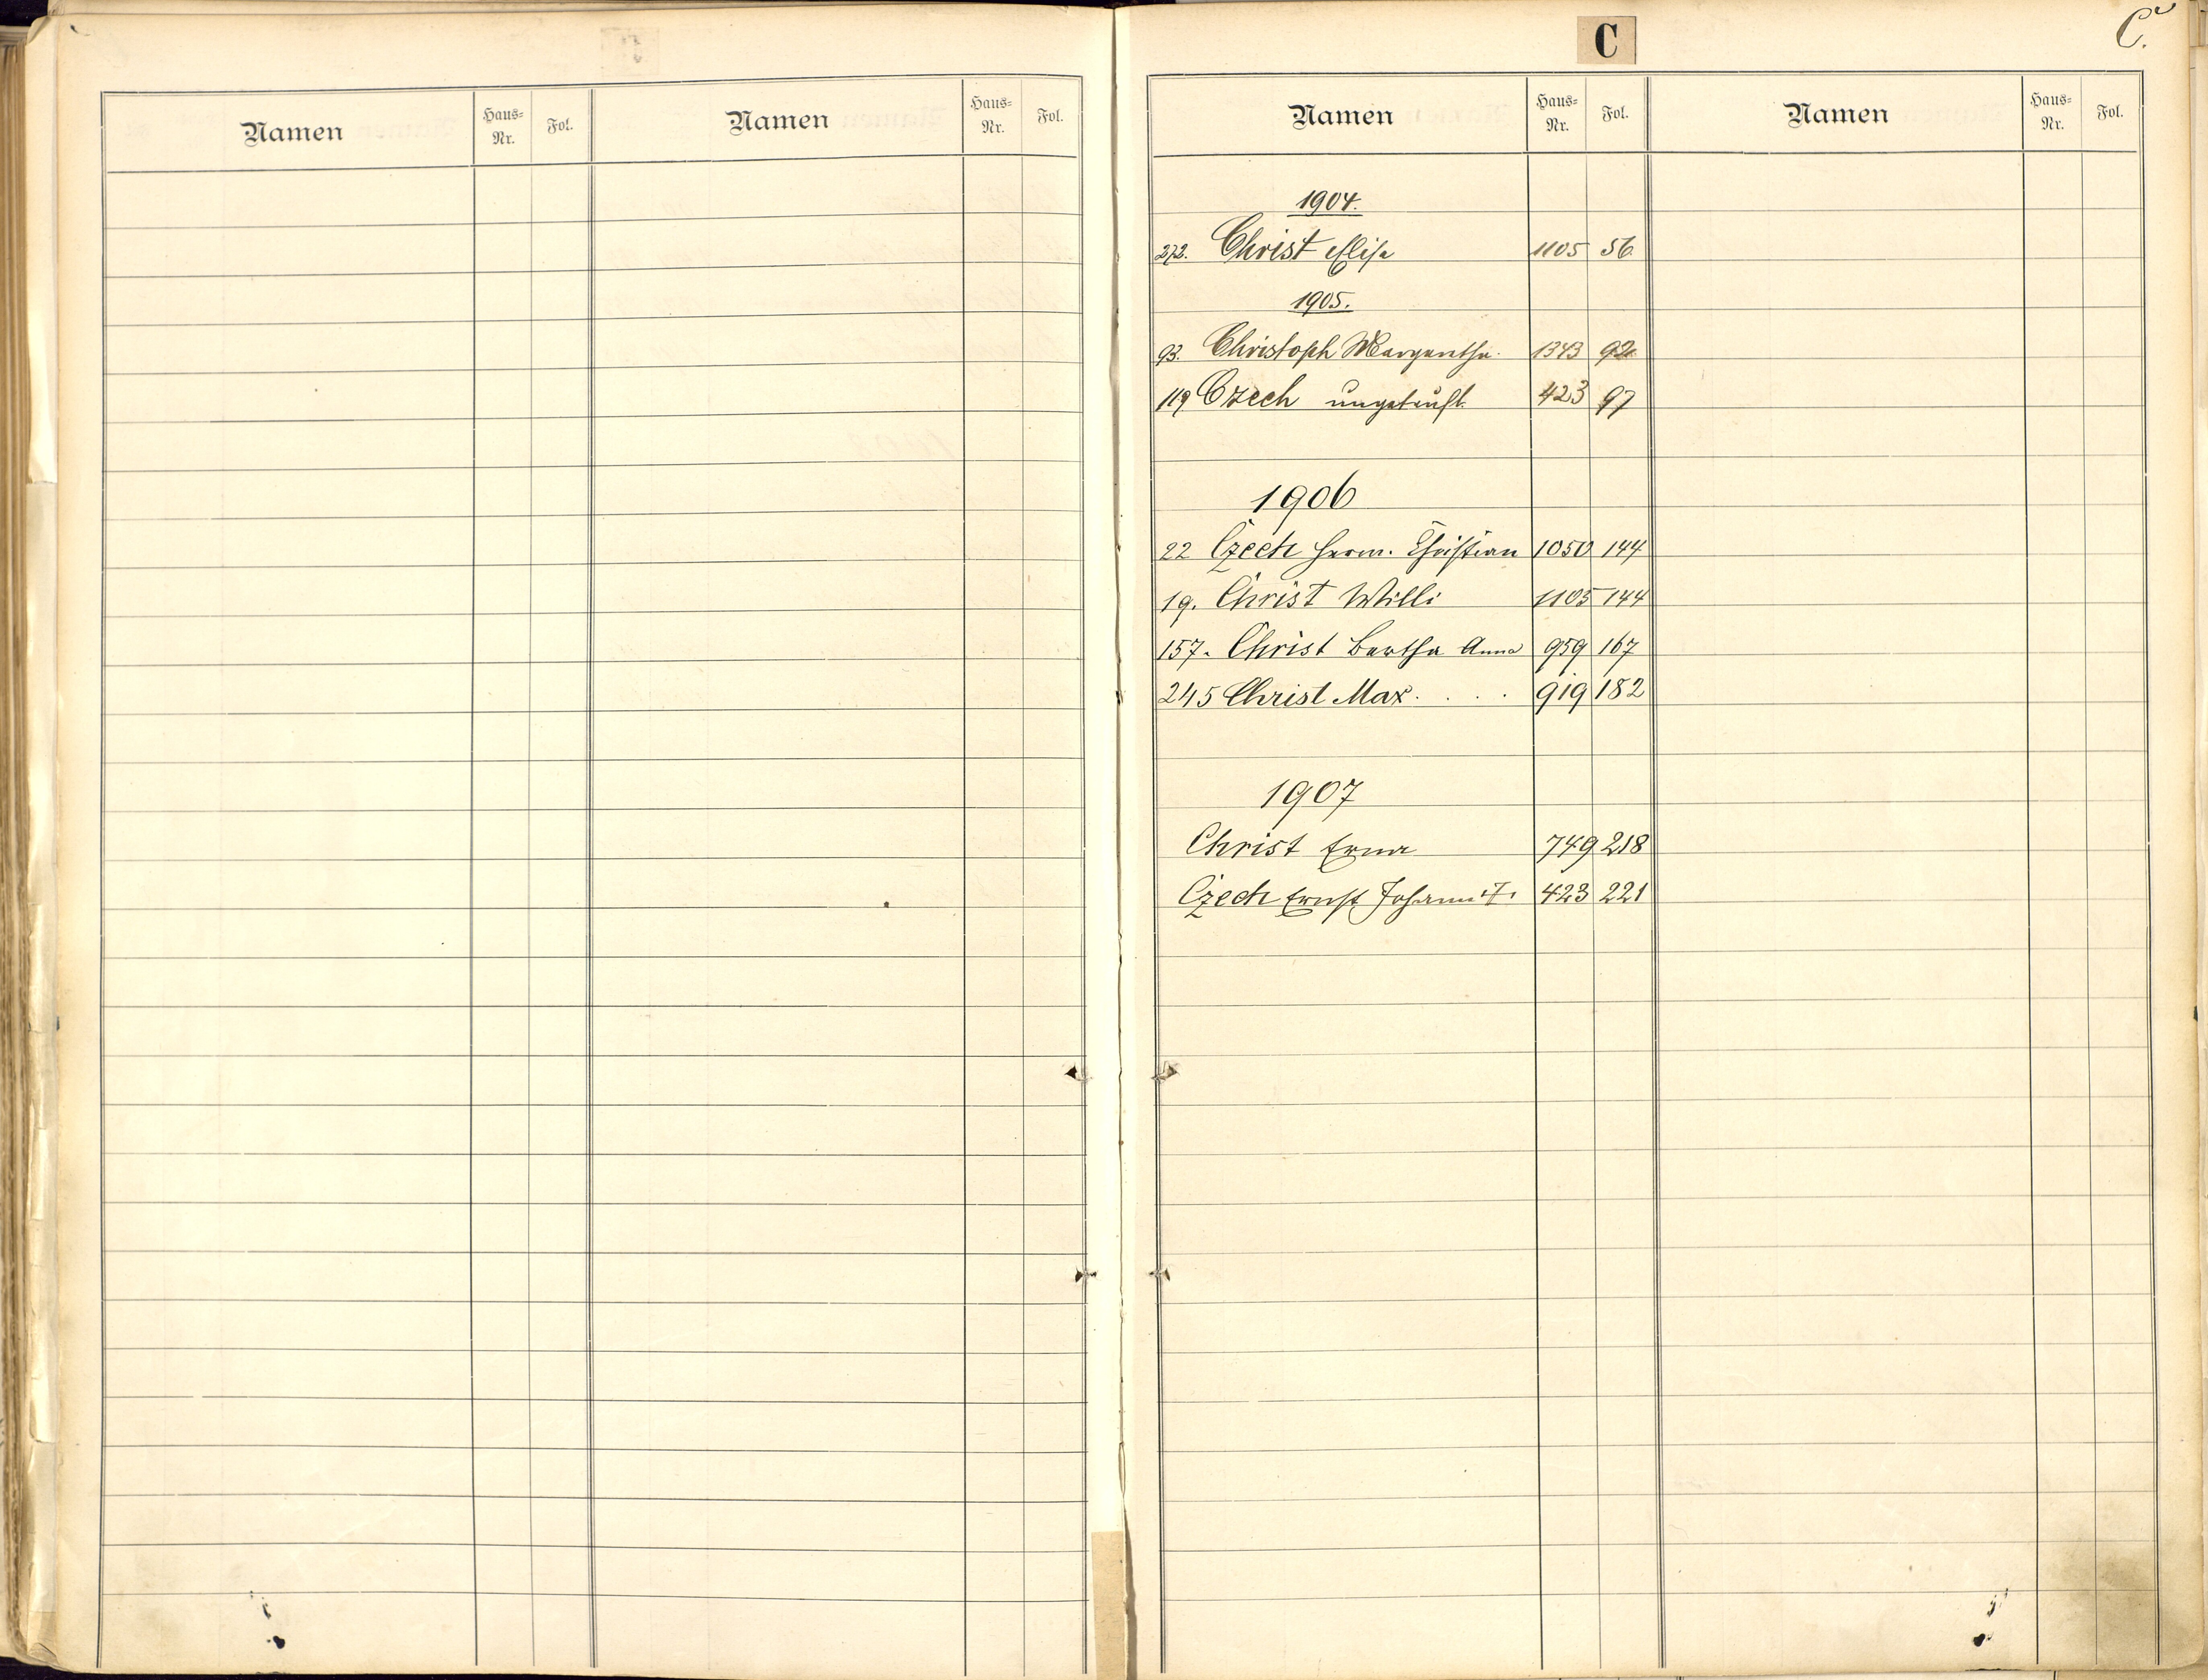 Namen Haus-Nr. Fol. Namen Haus-Nr. Fol.
C
C.
Namen Haus-Nr. Fol. Namen Haus-Nr. Fol.
1904.
272. Christ Elisa 1105 56
1905.
93. Christoph Margaretha. 1343 92
119 Czech ungetauft. 423 97
1906
22 Czech Herm. Christian 1050 144
19. Christ Willi 1105 144
157. Christ Bertha Anna 959 167
245 Christ Max . . . . 919 182
1907
Christ Erna 749 218
Czech Ernst Johann 423 221